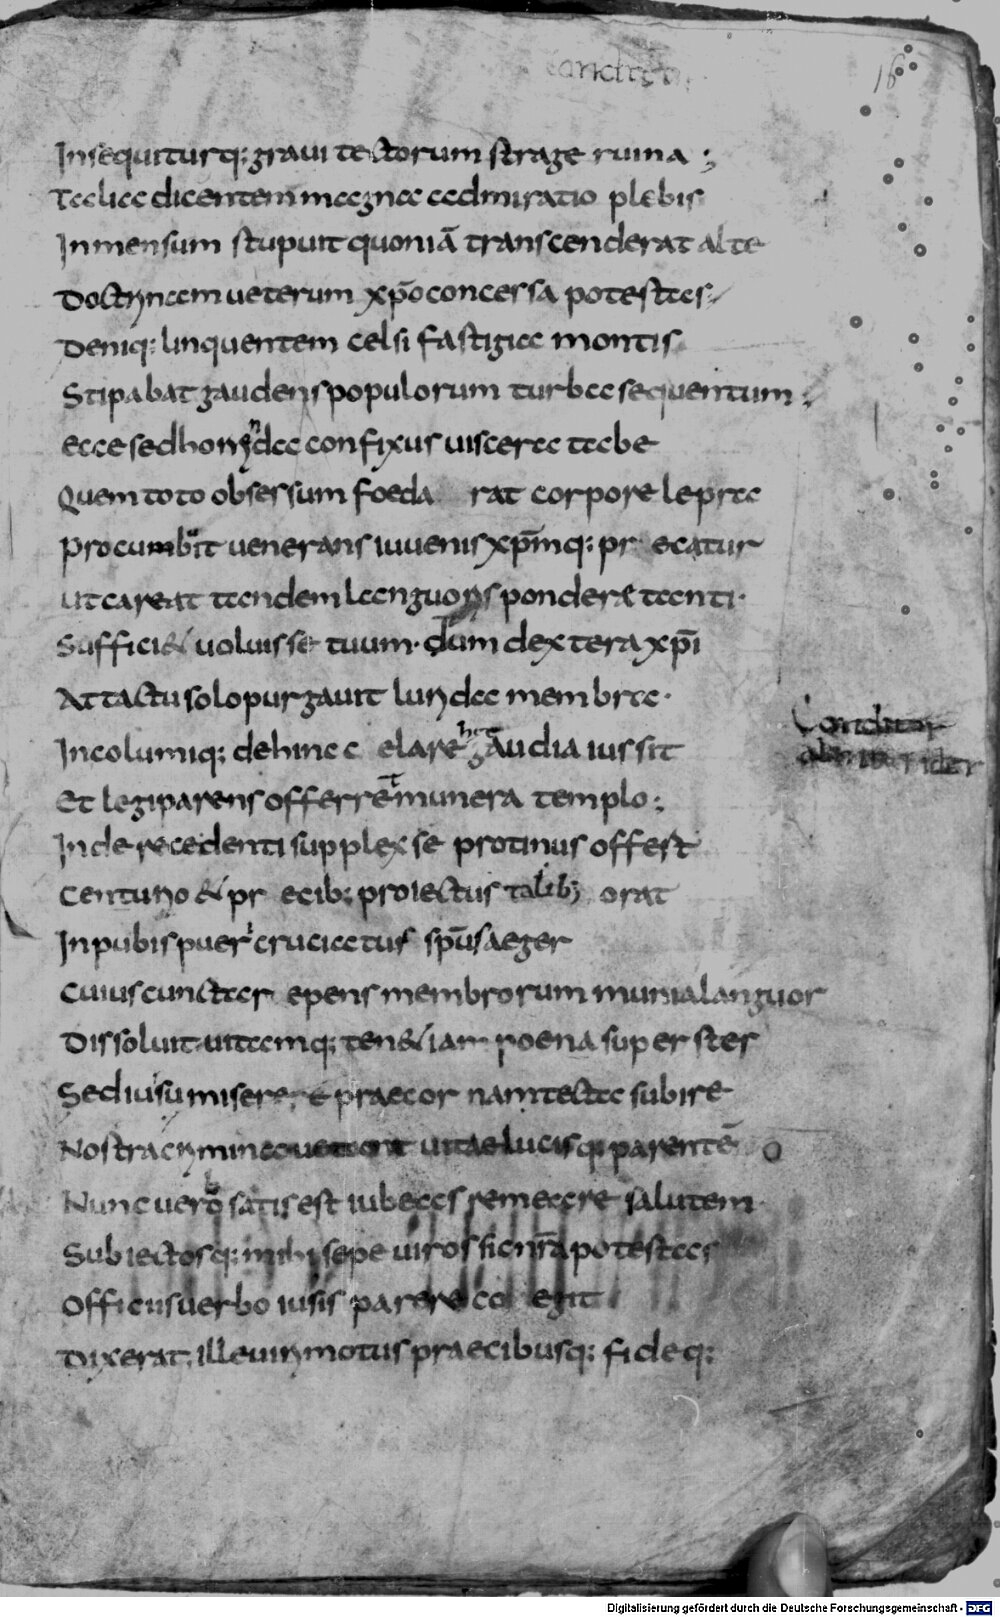 16
Insequiturq; graui tectorum strage ruina ;
Talia dicentem magna admiratio plebis
Inmensum stupuit quoniā transcenderat alte
Doctrinam ueterum xp̄o concessa potestas
Deniq; linquentem celsi fastigia montis
Stipabat gaudens populorum turba sequentum ;
ecce sed horrida confixus uiscera tabe
Quem toto obsessum foeda rat corpore lepra
Procumbit uenerans iuuenis xp̄mq; pr ecatur
ut careat tandem languoris pondere tanti
Sufficiet uoluisse tuum dum dextera xp̄i
Attactu solo purgauit lurida membra
Incolumiq; dehinc c elare gaudia iussit
Et legiparens offerre munera templo ;
Inde recedenti supplex se protinus offest
Centurio & pr ecib; proiectus talib; orat
In pubis pueri cruciatus sp̄us aeger
Cuius cunctas r epens membrorum munia languor
Dissoluit uitamq; tenet iam poena superstes
Sed iusu miserere praecor nam tecta subire
Nostra crimina uetant uitae lucisq; parentē
Nunc uero satis est iubeas remeare salutem
Subiectosq; mihi sepe uiros nr̄a potestas
Officiis uerbo iusis parere co egit
Dixerat, ille uiri motus praecibusq; fideq;
Conditor
Digitalisierung gefördert durch die Deutsche Forschungsgemeinschaft - DFG